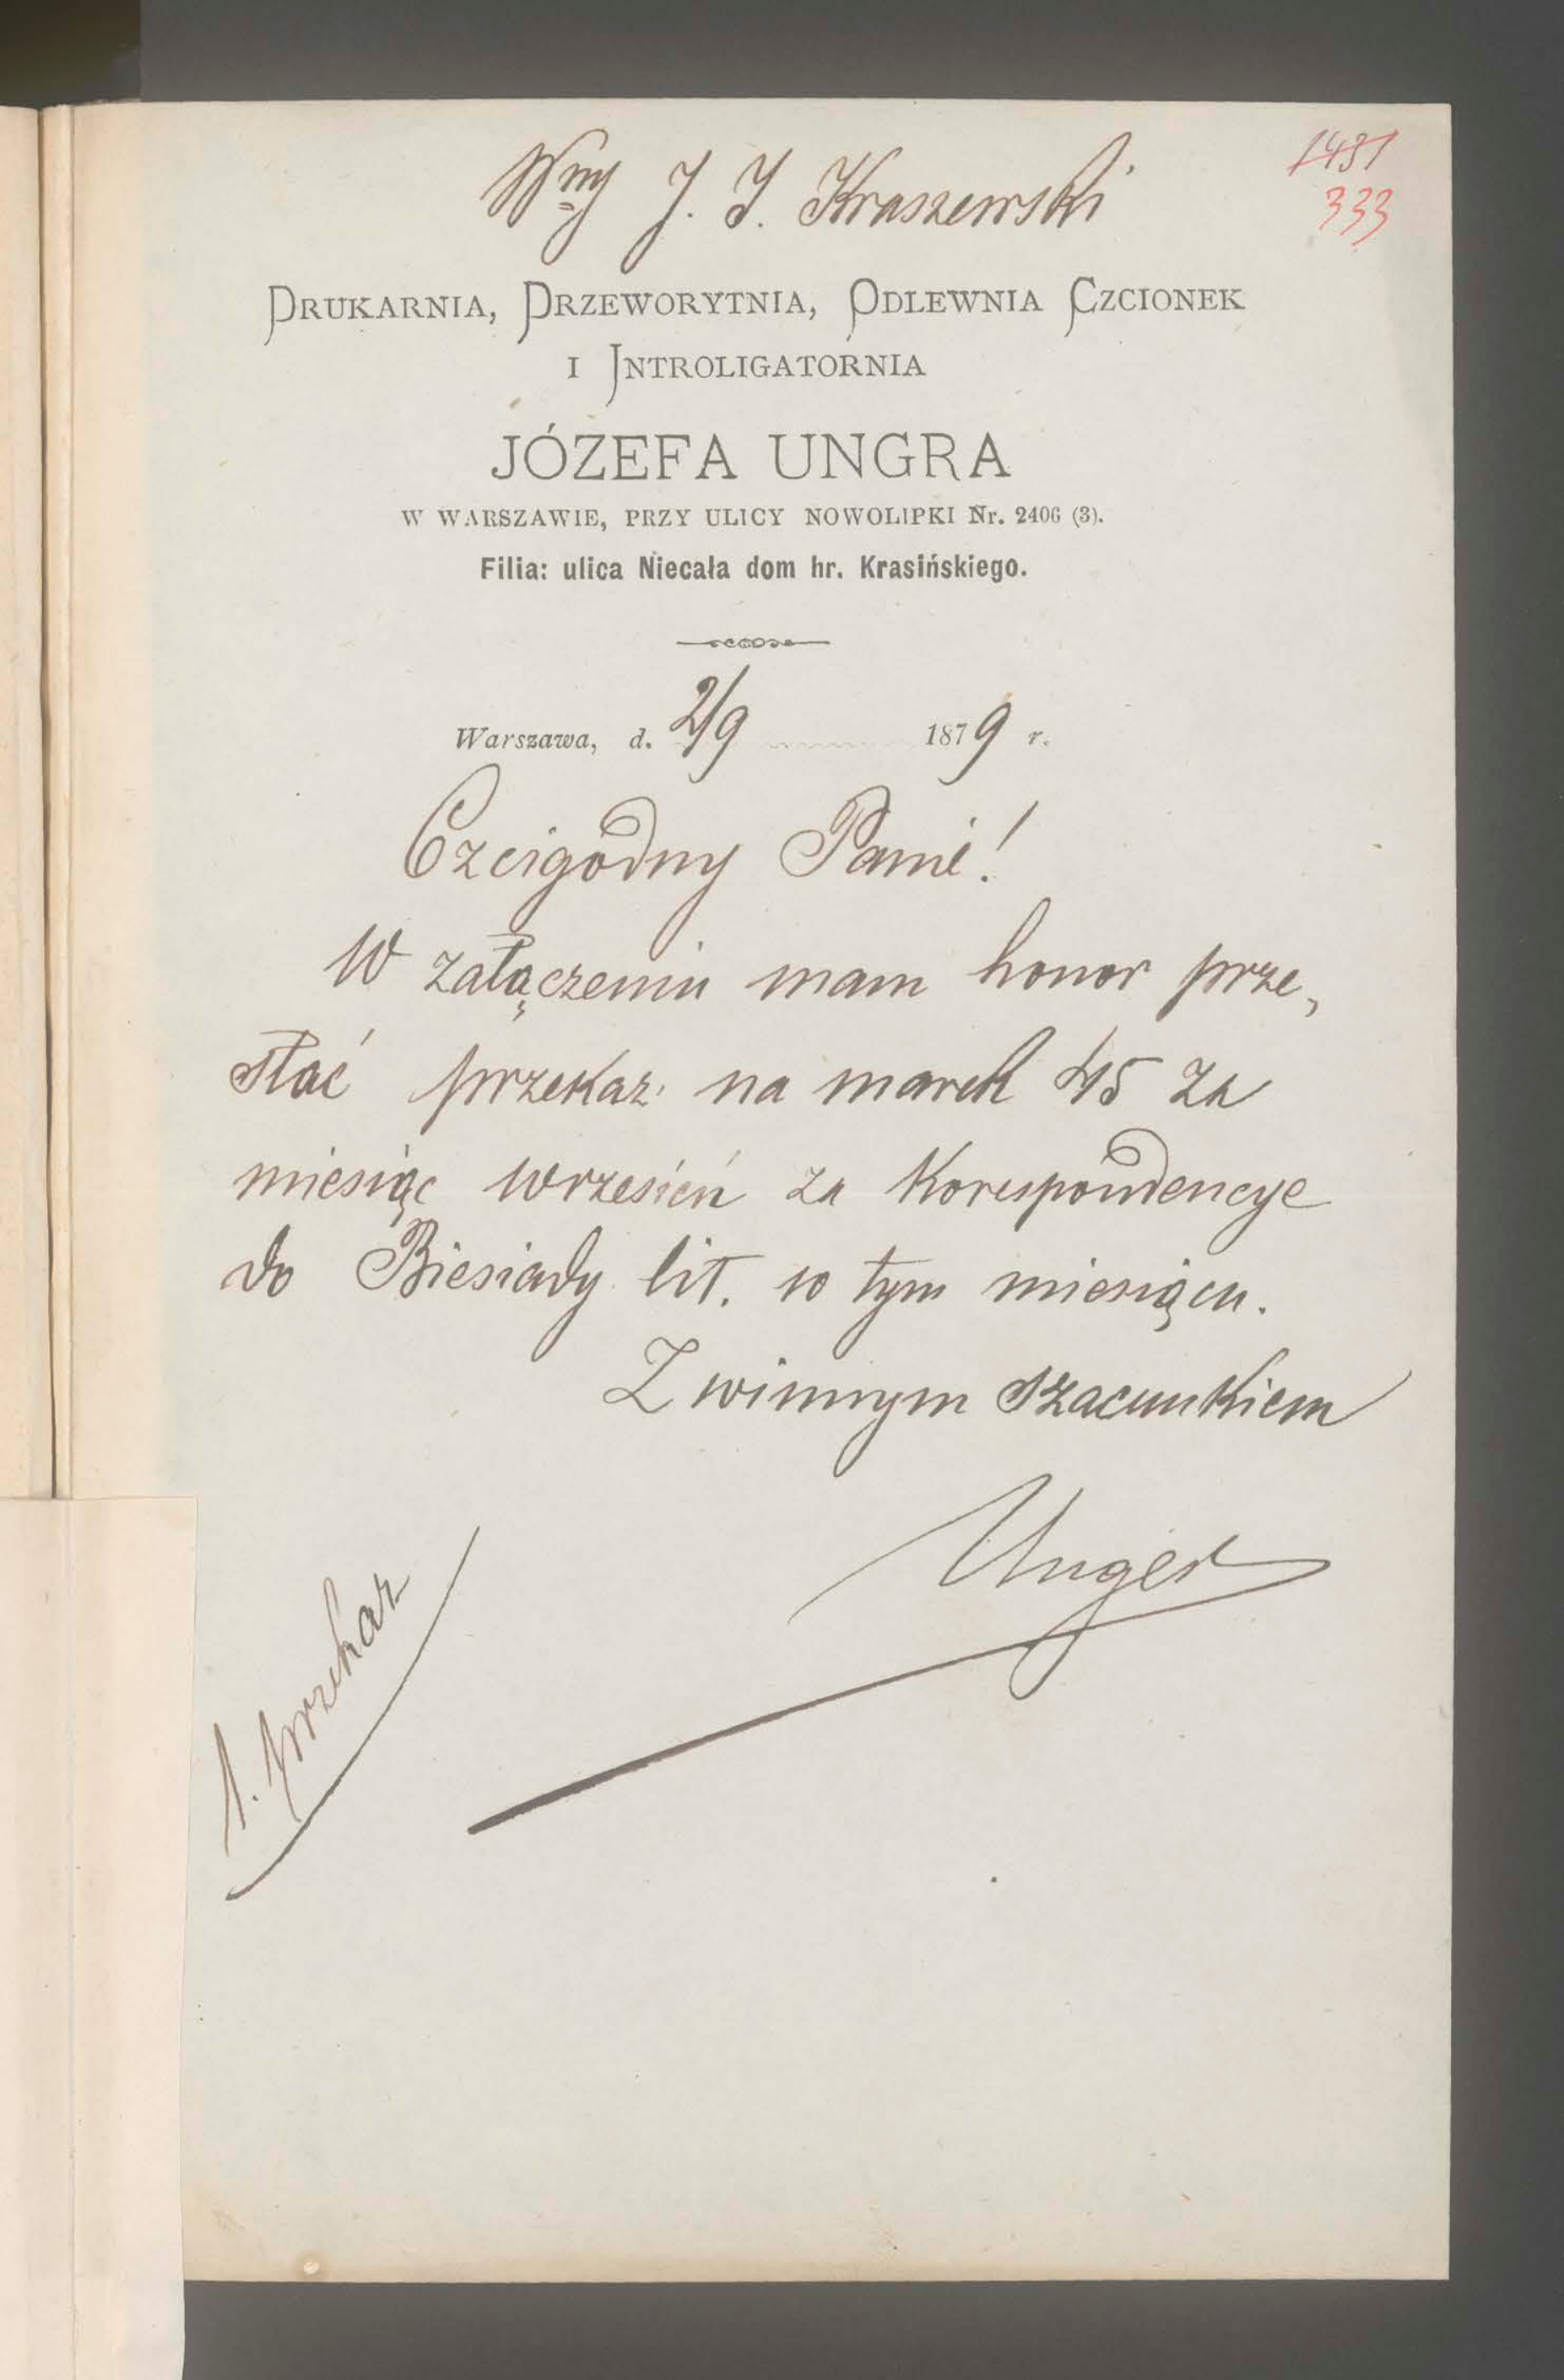 Wny J. I. Kraszewski
1481
333
DRUKARNIA, DRZEWORYTNIA, ODLEWNIA CZCIONEK
I INTROLIGATORNIA
JÓZEFA UNGRA
W WARSZAWIE, PRZY ULICY NOWOLIPKI Nr. 2406 (3).
Filia: ulica Niecała dom hr. Krasińskiego.
Warszawa, d. 2/9 1879 r.
Czcigodny Panie!
W załączeniu mam honor prze„
słać przekaz na marek 45 za
miesiąc wrzesień za Korespondencye
do Biesiady lit. w tym miesiącu.
Z winnym szacunkiem
Unger
1. przekaz